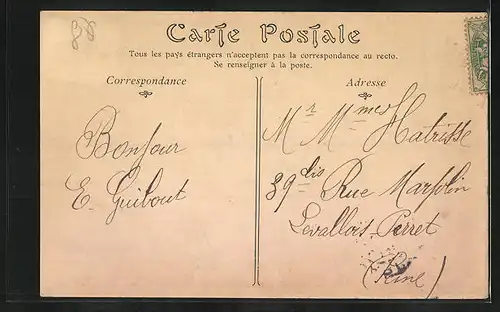 88
Carte Postale
Tous les pays étrangers n'acceptent pas la correspondance au recto.
Se renseigner à la poste.
Correspondance
Adresse
Bonjour
E. Guibout
Mr Mmes Hatrisse
39 bis Rue Marjolin
Levallois-Perret
(Seine)